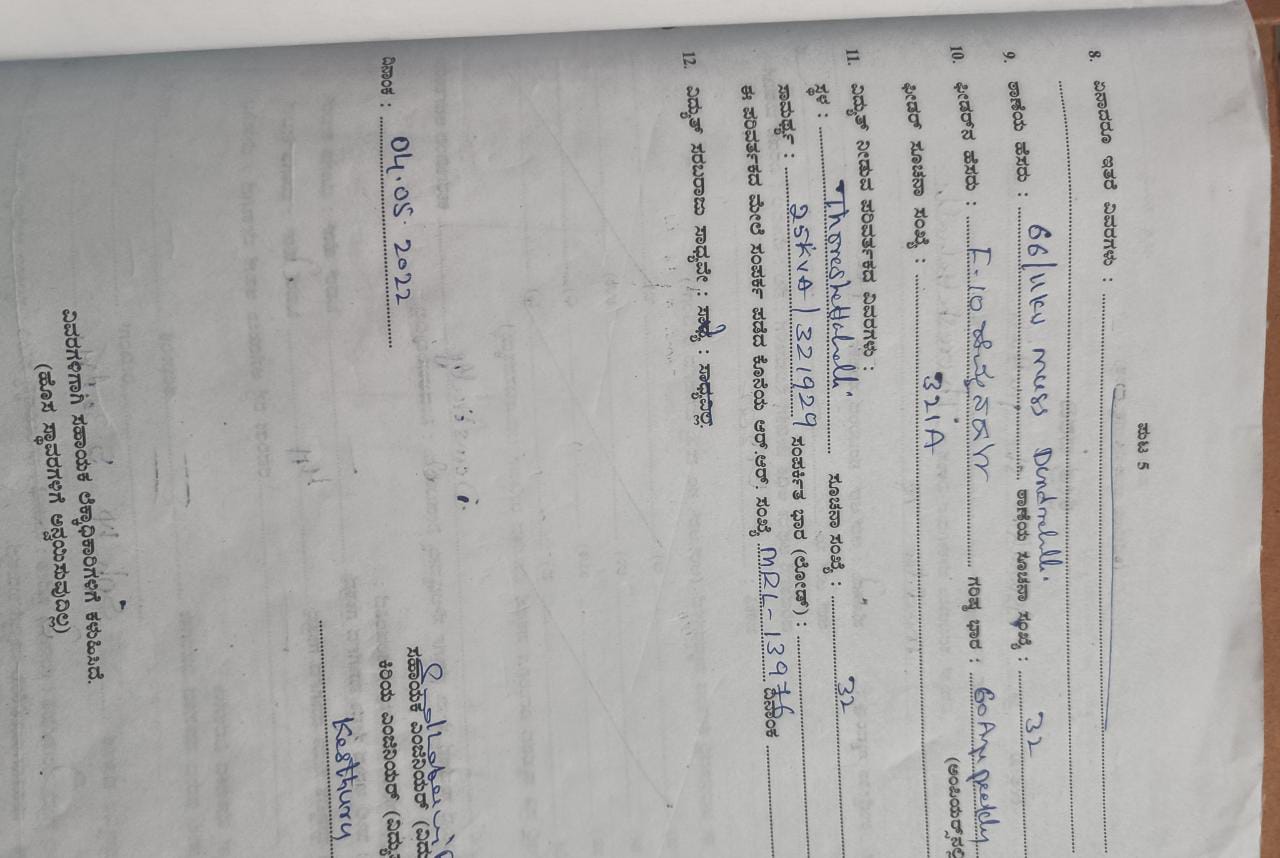 ಪುಟ 5
8. ಏನಾದರೂ ಇತರೆ ವಿವರಗಳು :
9. ಠಾಣೆಯ ಹೆಸರು : 66/11KV MUSS Dundnahalli. ಠಾಣೆಯ ಸೂಚನಾ ಸಂಖ್ಯೆ : 32
10. ಫೀಡರ್‌ನ ಹೆಸರು : F-10 ಗರಿಷ್ಠ ಭಾರ : 60Amp
(ಆಂಪಿಯರ್‌ನಲ್ಲಿ
ಫೀಡರ್ ಸೂಚನಾ ಸಂಖ್ಯೆ : 321A
11. ವಿದ್ಯುತ್ ನೀಡುವ ಪರಿವರ್ತಕದ ವಿವರಗಳು :
ಸ್ಥಳ : Thoreshettahalli. ಸೂಚನಾ ಸಂಖ್ಯೆ : 32
ಸಾಮರ್ಥ್ಯ : 25KVA / 321929 ಸಂಪರ್ಕಿತ ಭಾರ (ಲೋಡ್) :
ಈ ಪರಿವರ್ತಕದ ಮೇಲೆ ಸಂಪರ್ಕ ಪಡೆದ ಕೊನೆಯ ಆರ್.ಆರ್. ಸಂಖ್ಯೆ MRL-13976 ದಿನಾಂಕ
12. ವಿದ್ಯುತ್ ಸರಬರಾಜು ಸಾಧ್ಯವೇ : ಸಾಧ್ಯ : ಸಾಧ್ಯವಿಲ್ಲ.
ದಿನಾಂಕ : 04.05.2022
ಸಹಾಯಕ ಎಂಜಿನಿಯರ್ (ವಿದ್ಯು
ಕಿರಿಯ ಎಂಜಿನಿಯರ್ (ವಿದ್ಯು
Kesthuru
ವಿವರಗಳಿಗಾಗಿ ಸಹಾಯಕ ಲೆಕ್ಕಾಧಿಕಾರಿಗಳಿಗೆ ಕಳುಹಿಸಿದೆ.
(ಹೊಸ ಸ್ಥಾವರಗಳಿಗೆ ಅನ್ವಯಿಸುವುದಿಲ್ಲ)